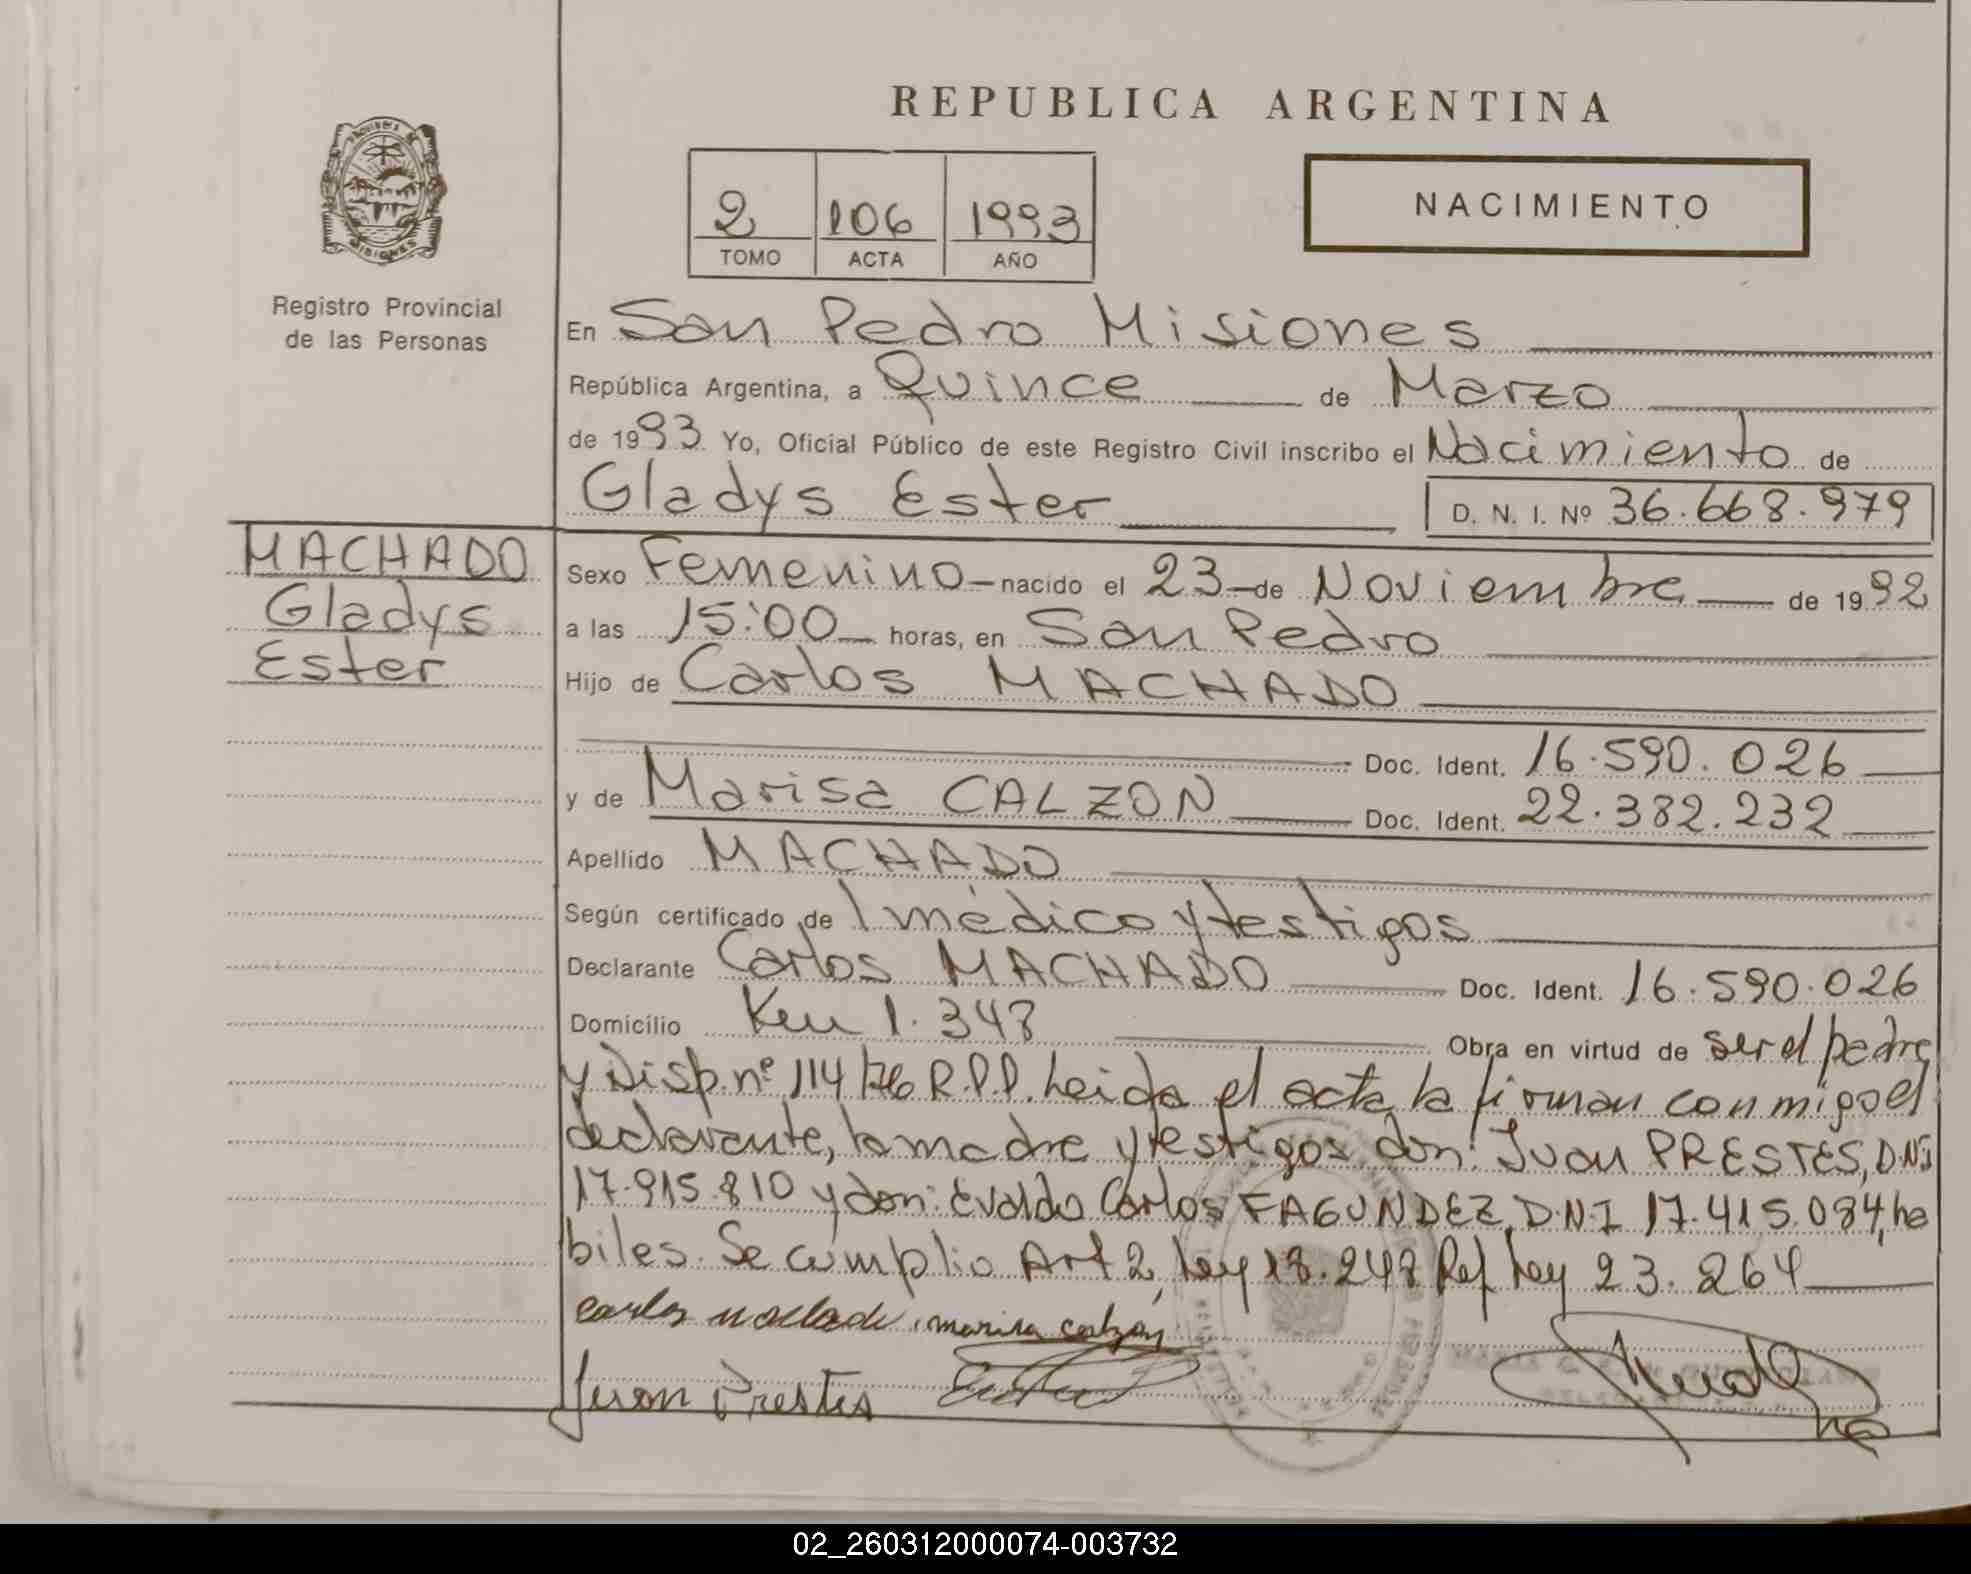 REPUBLICA ARGENTINA
NACIMIENTO
2 106 1993
TOMO ACTA AÑO
Registro Provincial
de las Personas
En San Pedro Misiones
República Argentina, a Quince de Marzo
de 1993. Yo, Oficial Público de este Registro Civil inscribo el Nacimiento de
Gladys Ester D. N. I. Nº 36.668.979
MACHADO
Gladys
Ester
Sexo Femenino nacido el 23 de Noviembre de 1992
a las 15:00 horas, en San Pedro
Hijo de Carlos MACHADO
Doc. Ident. 16.590.026
y de Marisa CALZON Doc. Ident. 22.382.232
Apellido MACHADO
Según certificado de 1 médico y testigos
Declarante Carlos MACHADO Doc. Ident. 16.590.026
Domicilio Km 1.348 Obra en virtud de ser el padre
y Disp. nº 114/76 R.P.P. Leida el acta, la firman conmigo el
declarante, la madre y testigos don: Juan PRESTES, D.N.I
17.915.810 y don: Evaldo Carlos FAGUNDEZ, D.N.I 17.415.084, ha
biles. Se cumplio Art 2, Ley 18.248 Ref Ley 23.264
carlos machado marisa calzon
Juan Prestes
02_260312000074-003732